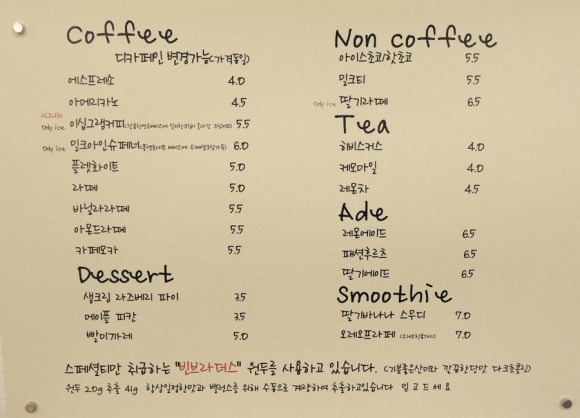 Coffee
디카페인 변경가능(가격동일)
에스프레소 4.0
아메리카노 4.5
시그니처
Only ice 이십그램커피 5.5
Only ice 밀크아인슈페너 6.0
플랫화이트 5.0
라떼 5.0
바닐라라떼 5.5
아몬드라떼 5.5
카페모카 5.5
Dessert
생크림 라즈베리 파이 3.5
메이플 피칸 3.5
빨미까레 5.0
Non coffee
아이스초코/핫초코 5.5
밀크티 5.5
Only ice 딸기라떼 6.5
Tea
히비스커스 4.0
케모마일 4.0
레몬차 4.5
Ade
레몬에이드 6.5
패션후르츠 6.5
딸기에이드 6.5
Smoothie
딸기바나나 스무디 7.0
오레오프라페 7.0
스페셜티만 취급하는 "빈브라더스" 원두를 사용하고 있습니다. (기분좋은산미와 깔끔한단맛 다크초콜릿)
원두 20g 추출 41g 항상일정한맛과 밸런스를 위해 수동으로 계량하여 추출하고있습니다 믿고드세요